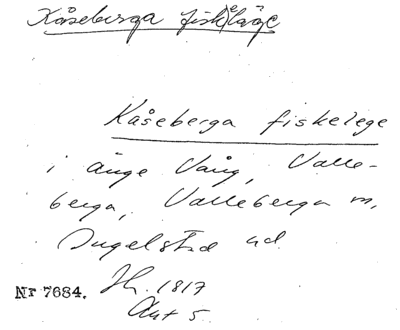 Kåseberga fisk(e)läge
Kåseberga fiskelege
i änge Vång, Valle-
berga, Valleberga m,
Ingelstad hd.
Nr 7684. Jh. 1817
Akt 5